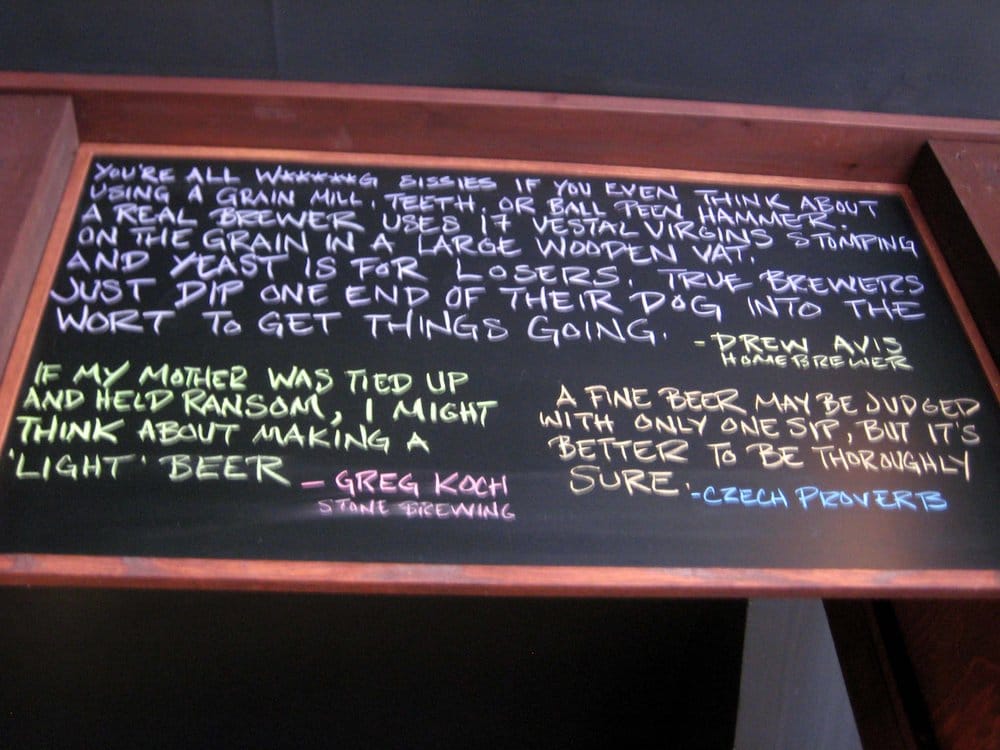 YOU'RE ALL W*****G SISSIES IF YOU EVEN THINK ABOUT
USING A GRAIN MILL, TEETH, OR BALL PEEN HAMMER.
A REAL BREWER USES 17 VESTAL VIRGINS STOMPING
ON THE GRAIN IN A LARGE WOODEN VAT.
AND YEAST IS FOR LOSERS. TRUE BREWERS
JUST DIP ONE END OF THEIR DOG INTO THE
WORT TO GET THINGS GOING.
- DREW AVIS
HOMEBREWER
IF MY MOTHER WAS TIED UP
AND HELD RANSOM, I MIGHT
THINK ABOUT MAKING A
'LIGHT' BEER
- GREG KOCH
STONE BREWING
A FINE BEER MAY BE JUDGED
WITH ONLY ONE SIP, BUT IT'S
BETTER TO BE THOROUGHLY
SURE. - CZECH PROVERB